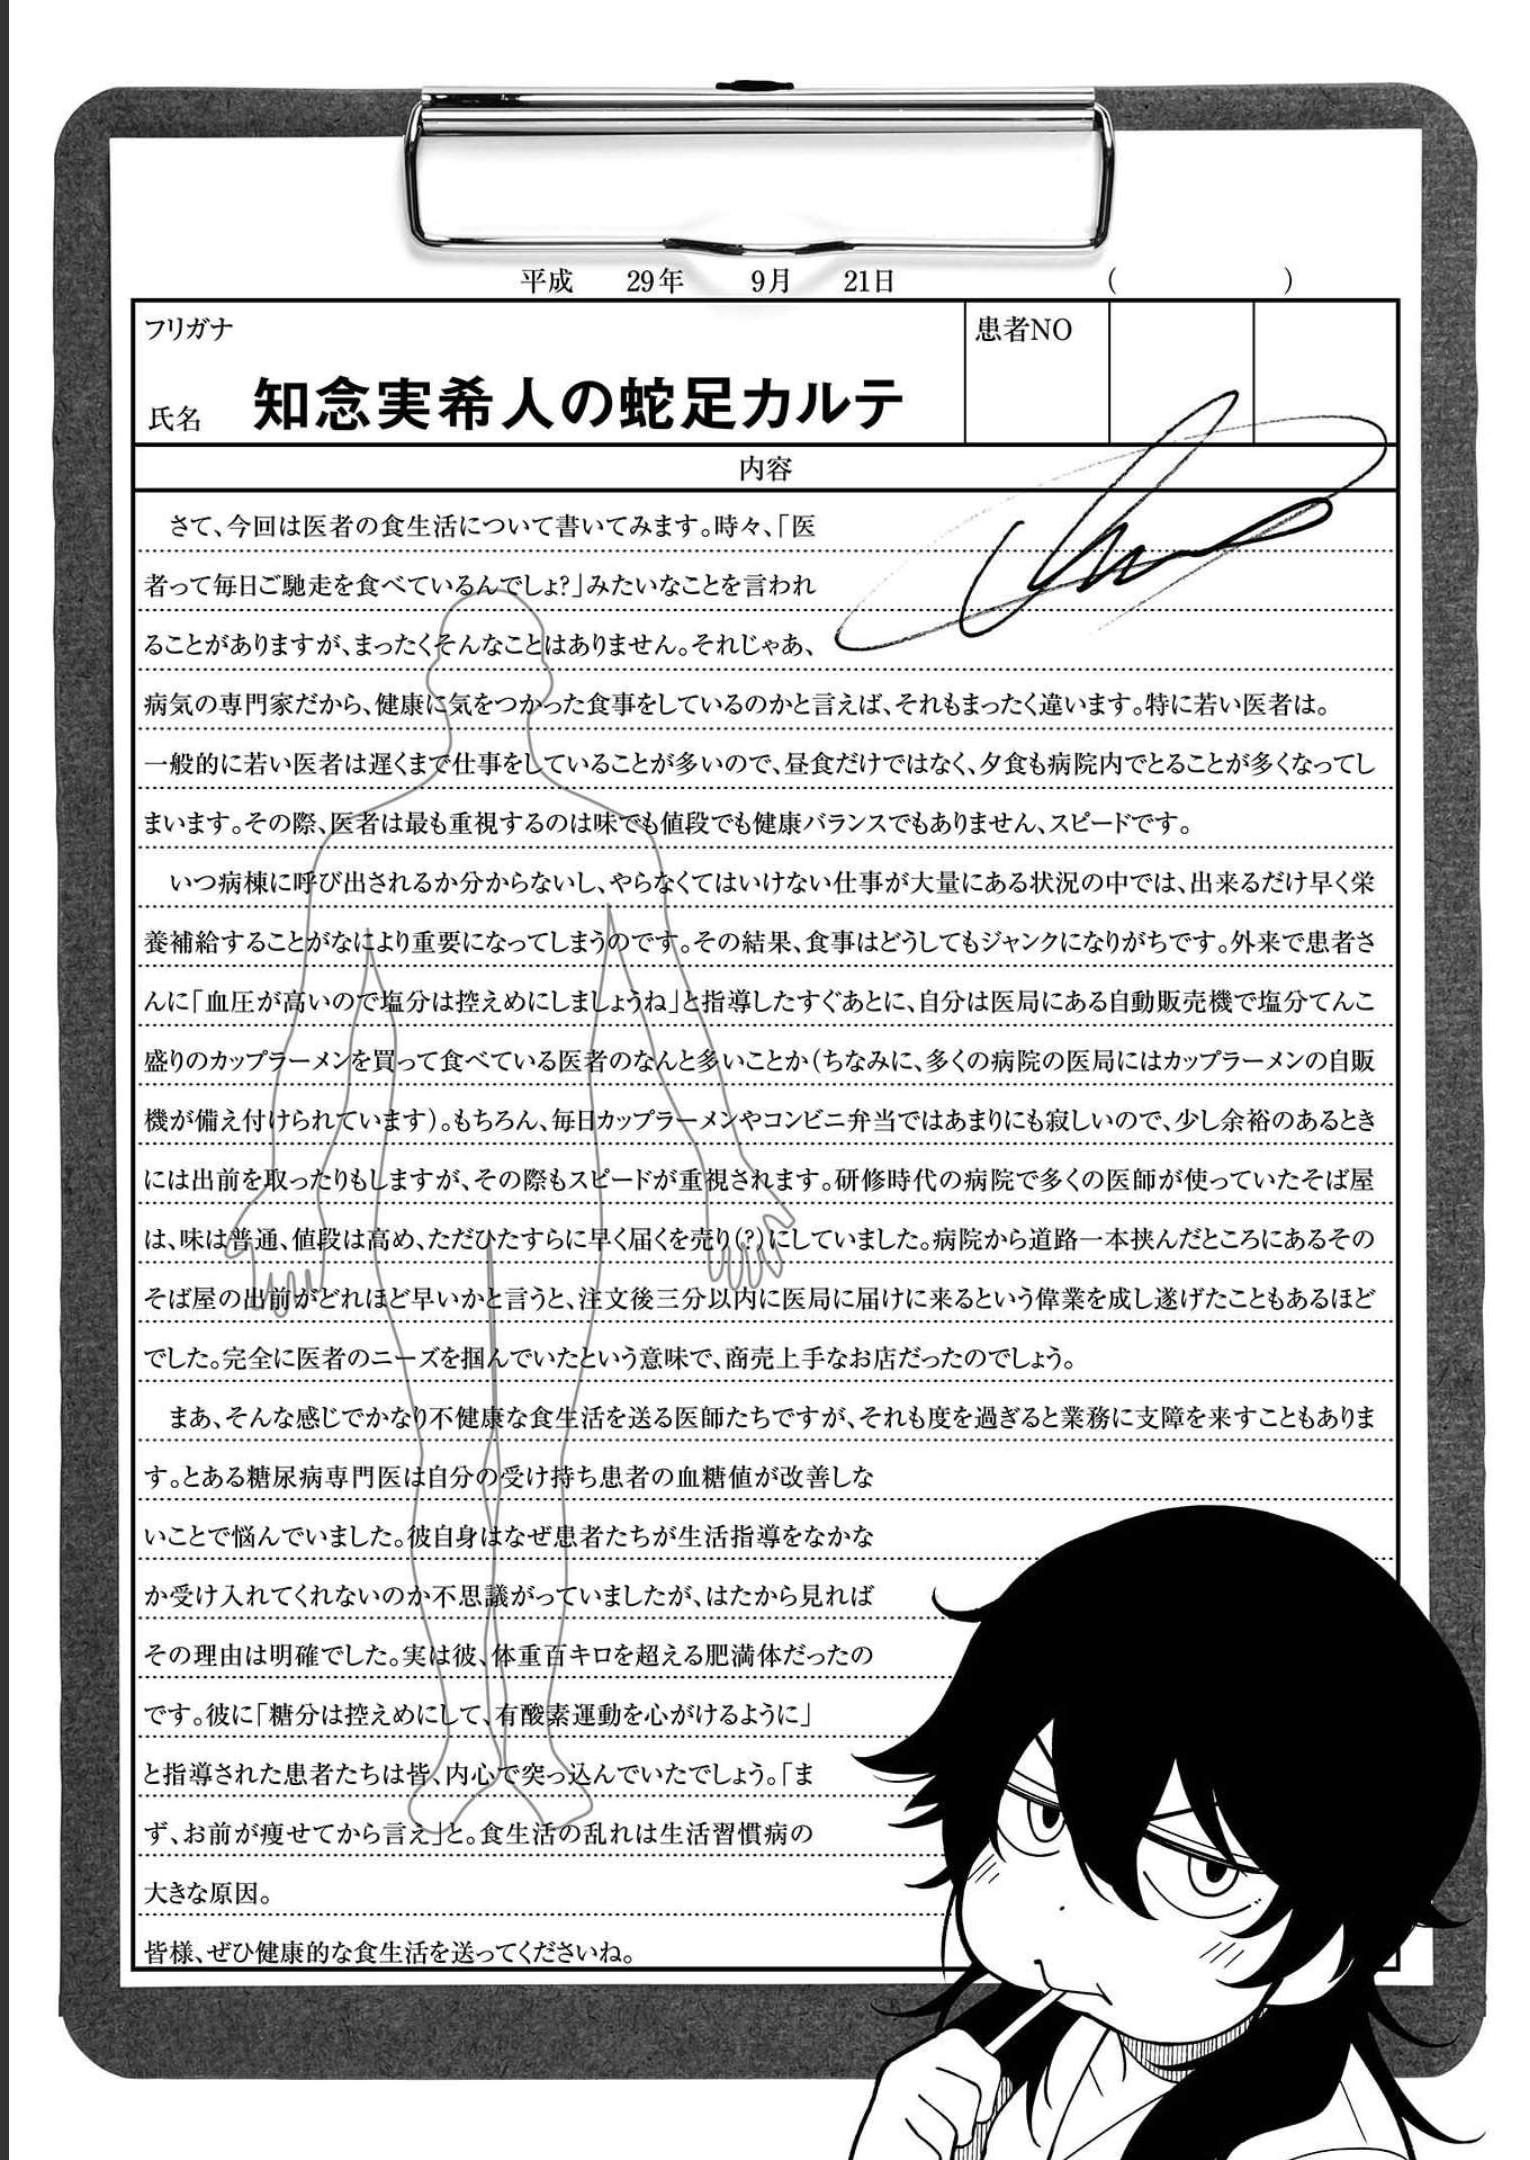 平成 29年 9月 21日 ( )
フリガナ
患者NO
氏名 知念実希人の蛇足カルテ
内容
さて、今回は医者の食生活について書いてみます。時々、「医
者って毎日ご馳走を食べているんでしょ?」みたいなことを言われ
ることがありますが、まったくそんなことはありません。それじゃあ、
病気の専門家だから、健康に気をつかった食事をしているのかと言えば、それもまったく違います。特に若い医者は。
一般的に若い医者は遅くまで仕事をしていることが多いので、昼食だけではなく、夕食も病院内でとることが多くなってし
まいます。その際、医者は最も重視するのは味でも値段でも健康バランスでもありません、スピードです。
いつ病棟に呼び出されるか分からないし、やらなくてはいけない仕事が大量にある状況の中では、出来るだけ早く栄
養補給することがなにより重要になってしまうのです。その結果、食事はどうしてもジャンクになりがちです。外来で患者さ
んに「血圧が高いので塩分は控えめにしましょうね」と指導したすぐあとに、自分は医局にある自動販売機で塩分てんこ
盛りのカップラーメンを買って食べている医者のなんと多いことか(ちなみに、多くの病院の医局にはカップラーメンの自販
機が備え付けられています)。もちろん、毎日カップラーメンやコンビニ弁当ではあまりにも寂しいので、少し余裕のあるとき
には出前を取ったりもしますが、その際もスピードが重視されます。研修時代の病院で多くの医師が使っていたそば屋
は、味は普通、値段は高め、ただひたすらに早く届くを売り(?)にしていました。病院から道路一本挟んだところにあるその
そば屋の出前がどれほど早いかと言うと、注文後三分以内に医局に届けに来るという偉業を成し遂げたこともあるほど
でした。完全に医者のニーズを掴んでいたという意味で、商売上手なお店だったのでしょう。
まあ、そんな感じでかなり不健康な食生活を送る医師たちですが、それも度を過ぎると業務に支障を来すこともありま
す。とある糖尿病専門医は自分の受け持ち患者の血糖値が改善しな
いことで悩んでいました。彼自身はなぜ患者たちが生活指導をなかな
か受け入れてくれないのか不思議がっていましたが、はたから見れば
その理由は明確でした。実は彼、体重百キロを超える肥満体だったの
です。彼に「糖分は控えめにして、有酸素運動を心がけるように」
と指導された患者たちは皆、内心で突っ込んでいたでしょう。「ま
ず、お前が痩せてから言え」と。食生活の乱れは生活習慣病の
大きな原因。
皆様、ぜひ健康的な食生活を送ってくださいね。